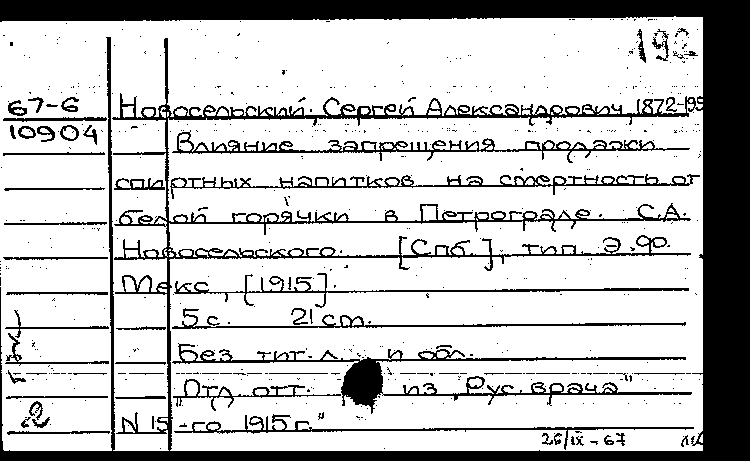 192
67-6 Новосельский, Сергей Александрович, 1872-195
10904 Влияние запрещения продажи
спиртных напитков на смертность от
белой горячки в Петрограде. С.А.
Новосельского. [Спб.], тип. Э.Ф.
Мекс, [1915].
5 с. 21 cm.
Без тит. л. и обл.
"Отд. отт. из "Рус. врача"
2 N 15-го 1915 г."
26/IX-67